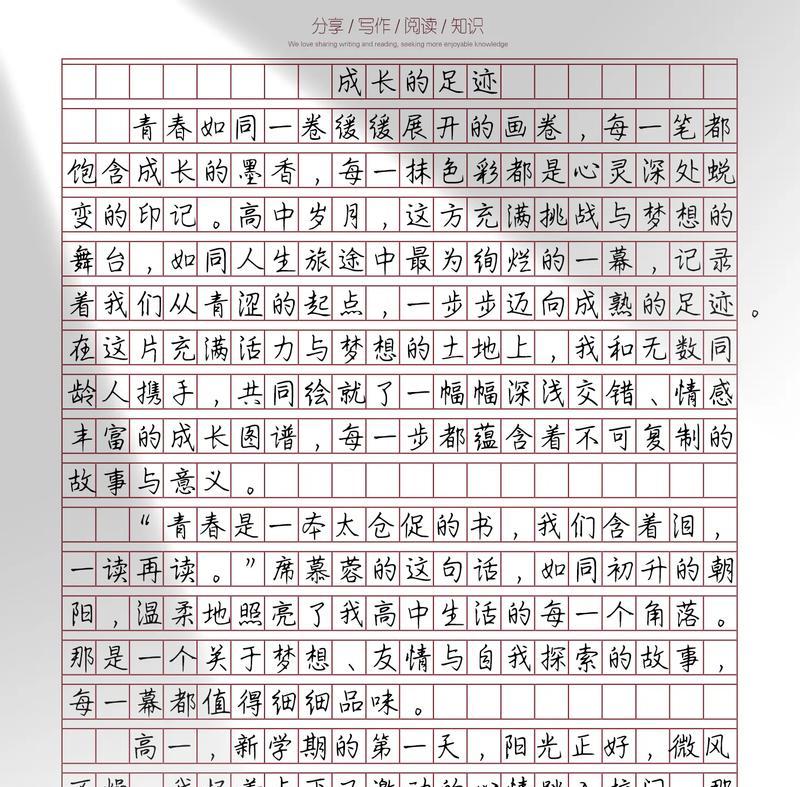 分享 / 写作 / 阅读 / 知识
We love sharing writing and reading, seeking more enjoyable knowledge
成长的足迹
青春如同一卷缓缓展开的画卷，每一笔都
饱含成长的墨香，每一抹色彩都是心灵深处蜕
变的印记。高中岁月，这方充满挑战与梦想的
舞台，如同人生旅途中最为绚烂的一幕，记录
着我们从青涩的起点，一步步迈向成熟的足迹。
在这片充满活力与梦想的土地上，我和无数同
龄人携手，共同绘就了一幅幅深浅交错、情感
丰富的成长图谱，每一步都蕴含着不可复制的
故事与意义。
“青春是一本太仓促的书，我们含着泪，
一读再读。”席慕蓉的这句话，如同初升的朝
阳，温柔地照亮了我高中生活的每一个角落。
那是一个关于梦想、友情与自我探索的故事，
每一幕都值得细细品味。
高一，新学期的第一天，阳光正好，微风